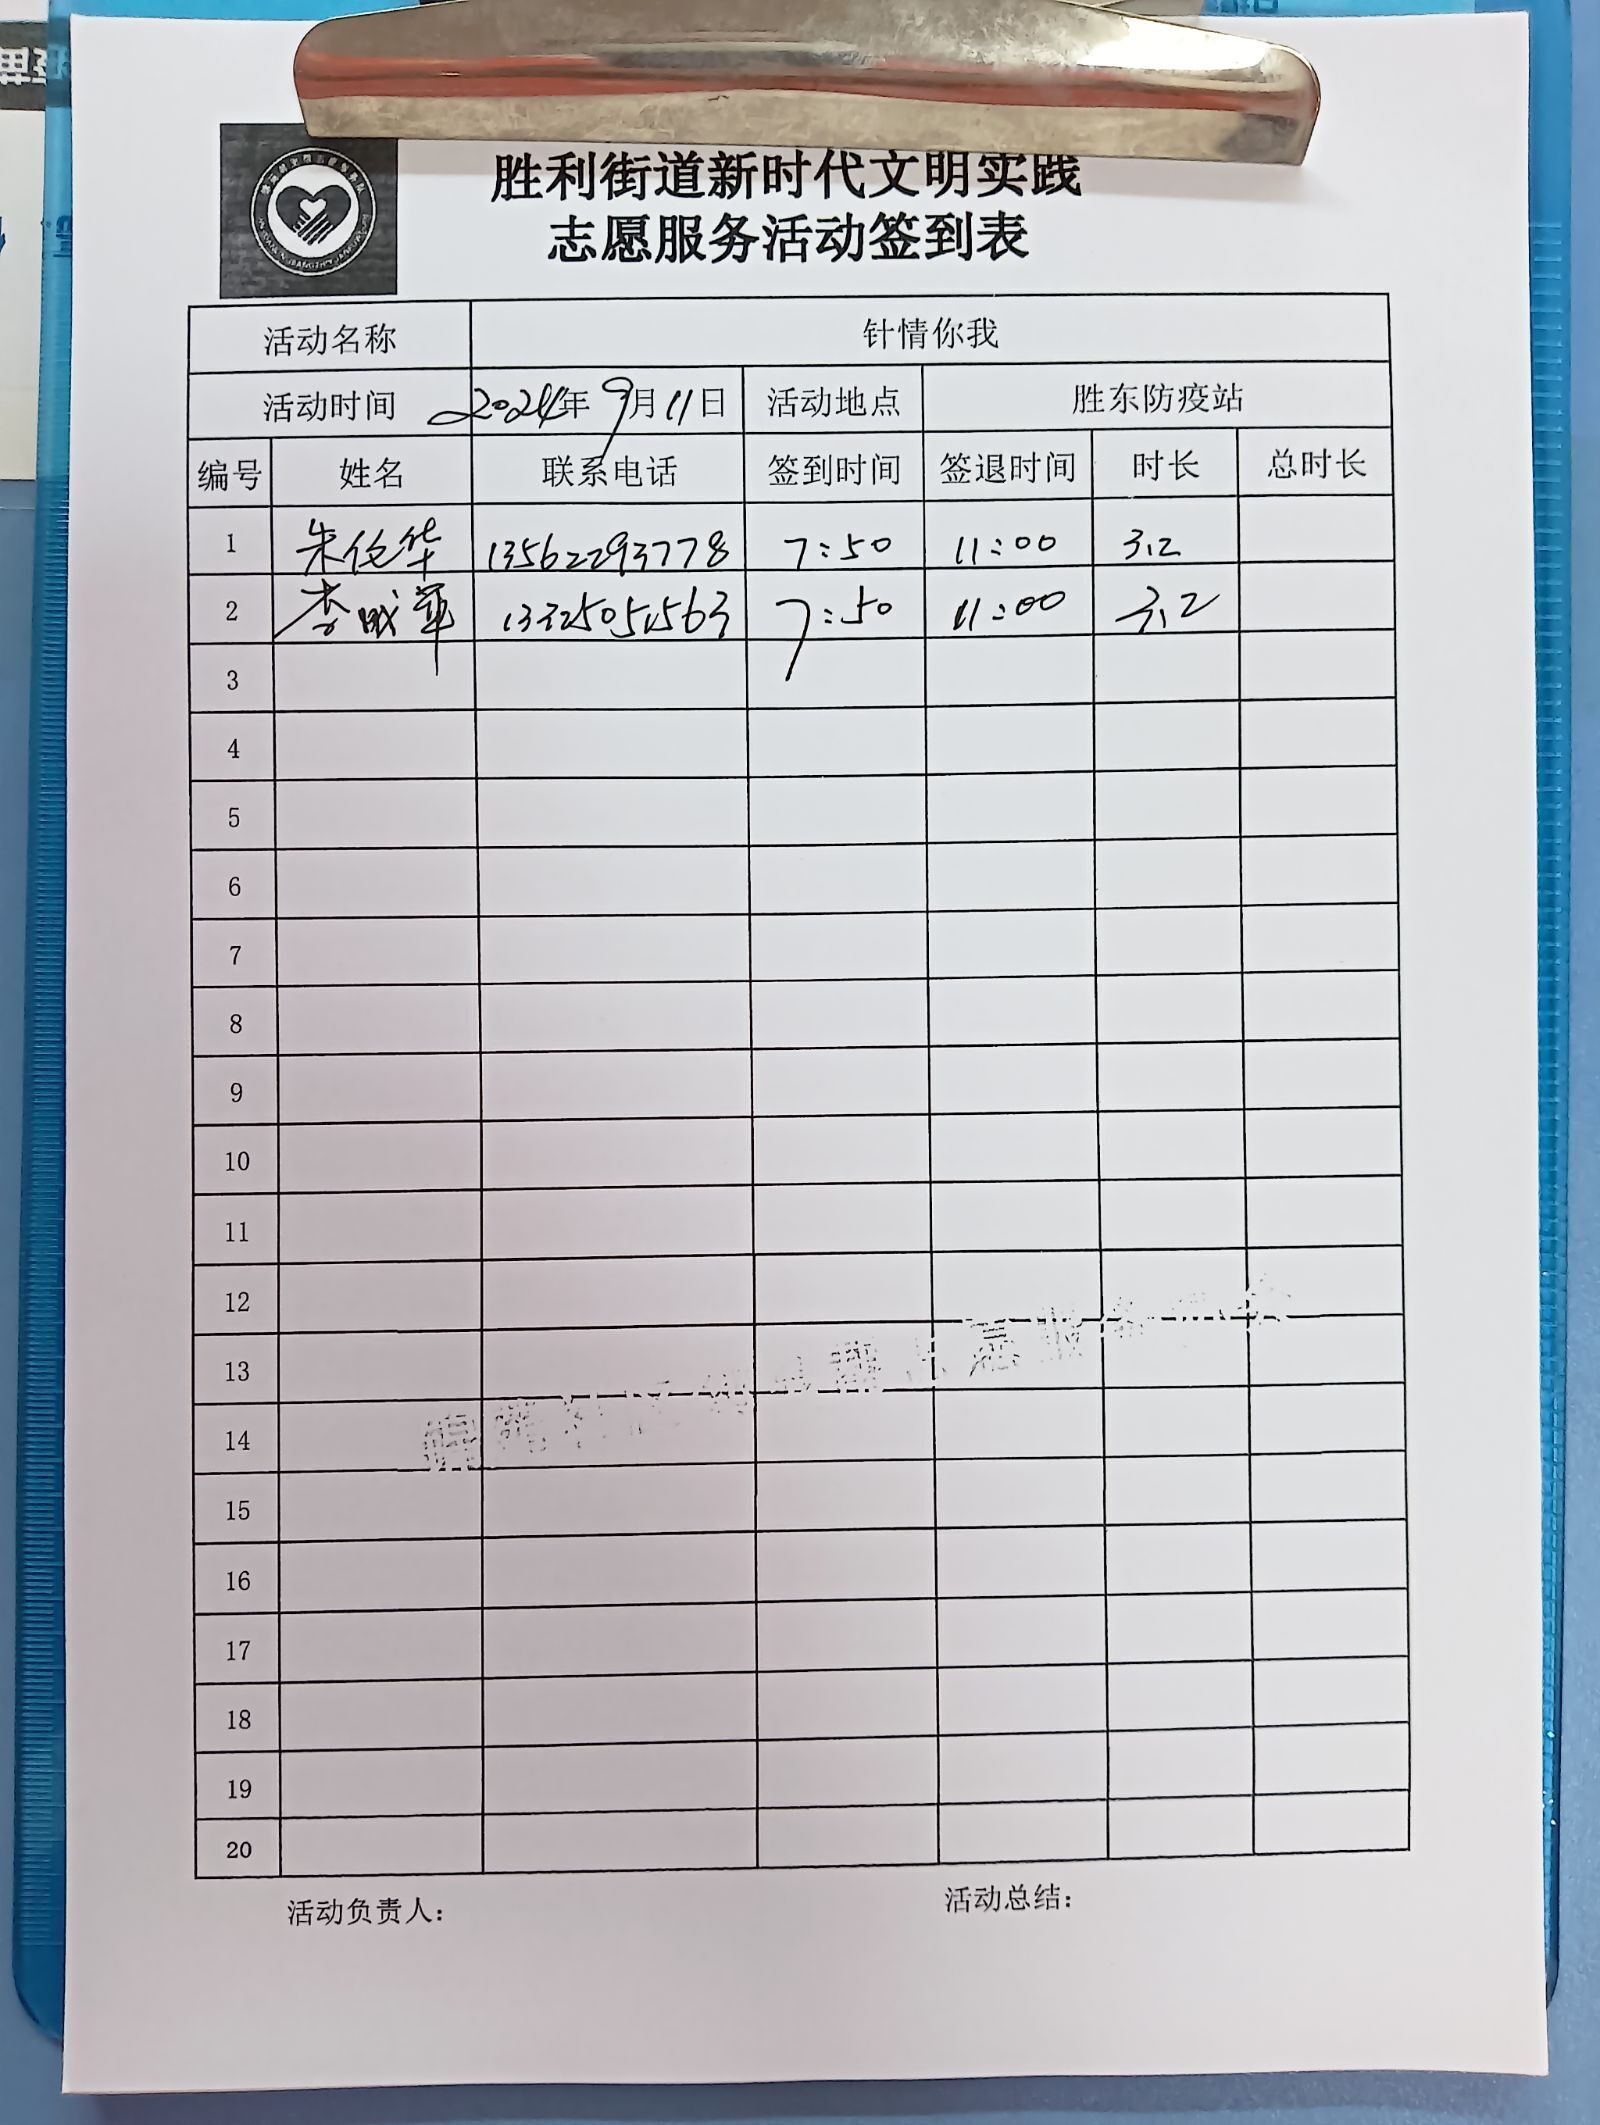 胜利街道新时代文明实践
志愿服务活动签到表
活动名称 针情你我
活动时间 2024年9月11日 活动地点 胜东防疫站
编号 姓名 联系电话 签到时间 签退时间 时长 总时长
1 朱伦华 13562293778 7:50 11:00 3.2
2 李成军 13325051563 7:50 11:00 3.2
3
4
5
6
7
8
9
10
11
12
13
14
15
16
17
18
19
20
活动负责人: 活动总结: